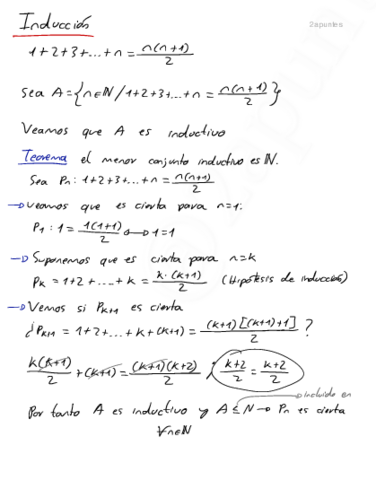 Inducción
2apuntes
1+2+3+...+n = n(n+1)/2
Sea A={n∈ℕ / 1+2+3+...+n = n(n+1)/2}
Veamos que A es inductivo
Teorema el menor conjunto inductivo es ℕ.
Sea Pn: 1+2+3+...+n = n(n+1)/2
→ veamos que es cierta para n=1:
P1 : 1 = 1(1+1)/2 → 1=1
→ Suponemos que es cierta para n=k
Pk = 1+2+...+k = k·(k+1)/2 (Hipótesis de inducción)
→ Vemos si Pk+1 es cierta
¿Pk+1 = 1+2+...+k+(k+1) = (k+1)[(k+1)+1]/2 ?
k(k+1)/2 + (k+1) = (k+1)(k+2)/2 ; k+2/2 = k+2/2
incluido en
Por tanto A es inductivo y A ≤ N → Pn es cierta
∀n∈N